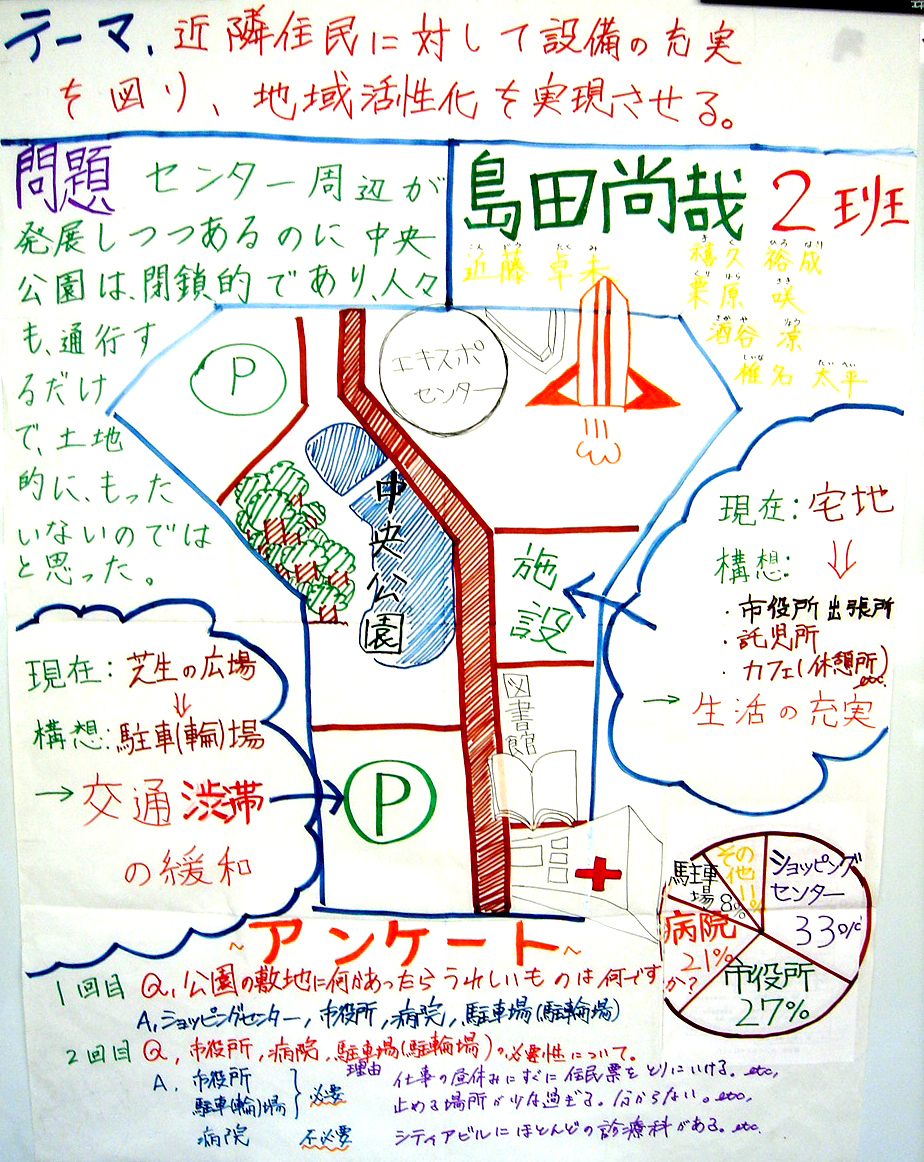 テーマ. 近隣住民に対して設備の充実
を図り、地域活性化を実現させる。
問題 センター周辺が
発展しつつあるのに中央
公園は、閉鎖的であり、人々
も、通行す
るだけ
で、土地
的に、もった
いないのでは
と思った。
島田尚哉 2班
こん どう たく み
近藤 卓未
き く ひろ なり
禧久 裕成
くり はら さき
栗原 咲
さか や りょう
酒谷 涼
しいな たいへい
椎名 太平
P
エキスポ
センター
中央公園
施設
図書館
P
現在: 宅地
構想:
・市役所出張所
・託児所
・カフェ(休憩所)
etc.
→ 生活の充実
現在: 芝生の広場
構想: 駐車(輪)場
→ 交通渋滞
の緩和
ショッピング
センター
33%
市役所
27%
病院
21%
駐車
場 8%
その
他 11%
~アンケート~
1回目 Q, 公園の敷地に何があったらうれしいものは何です
か?
A, ショッピングセンター, 市役所, 病院, 駐車場(駐輪場)
2回目 Q, 市役所, 病院, 駐車場(駐輪場)の必要性について。
A. 市役所
駐車(輪)場 必要
理由 仕事の昼休みにすぐに住民票をとりにいける。etc,
止める場所が少な過ぎる。分からない。etc,
病院 不必要 シティアビルにほとんどの診療科がある。etc.